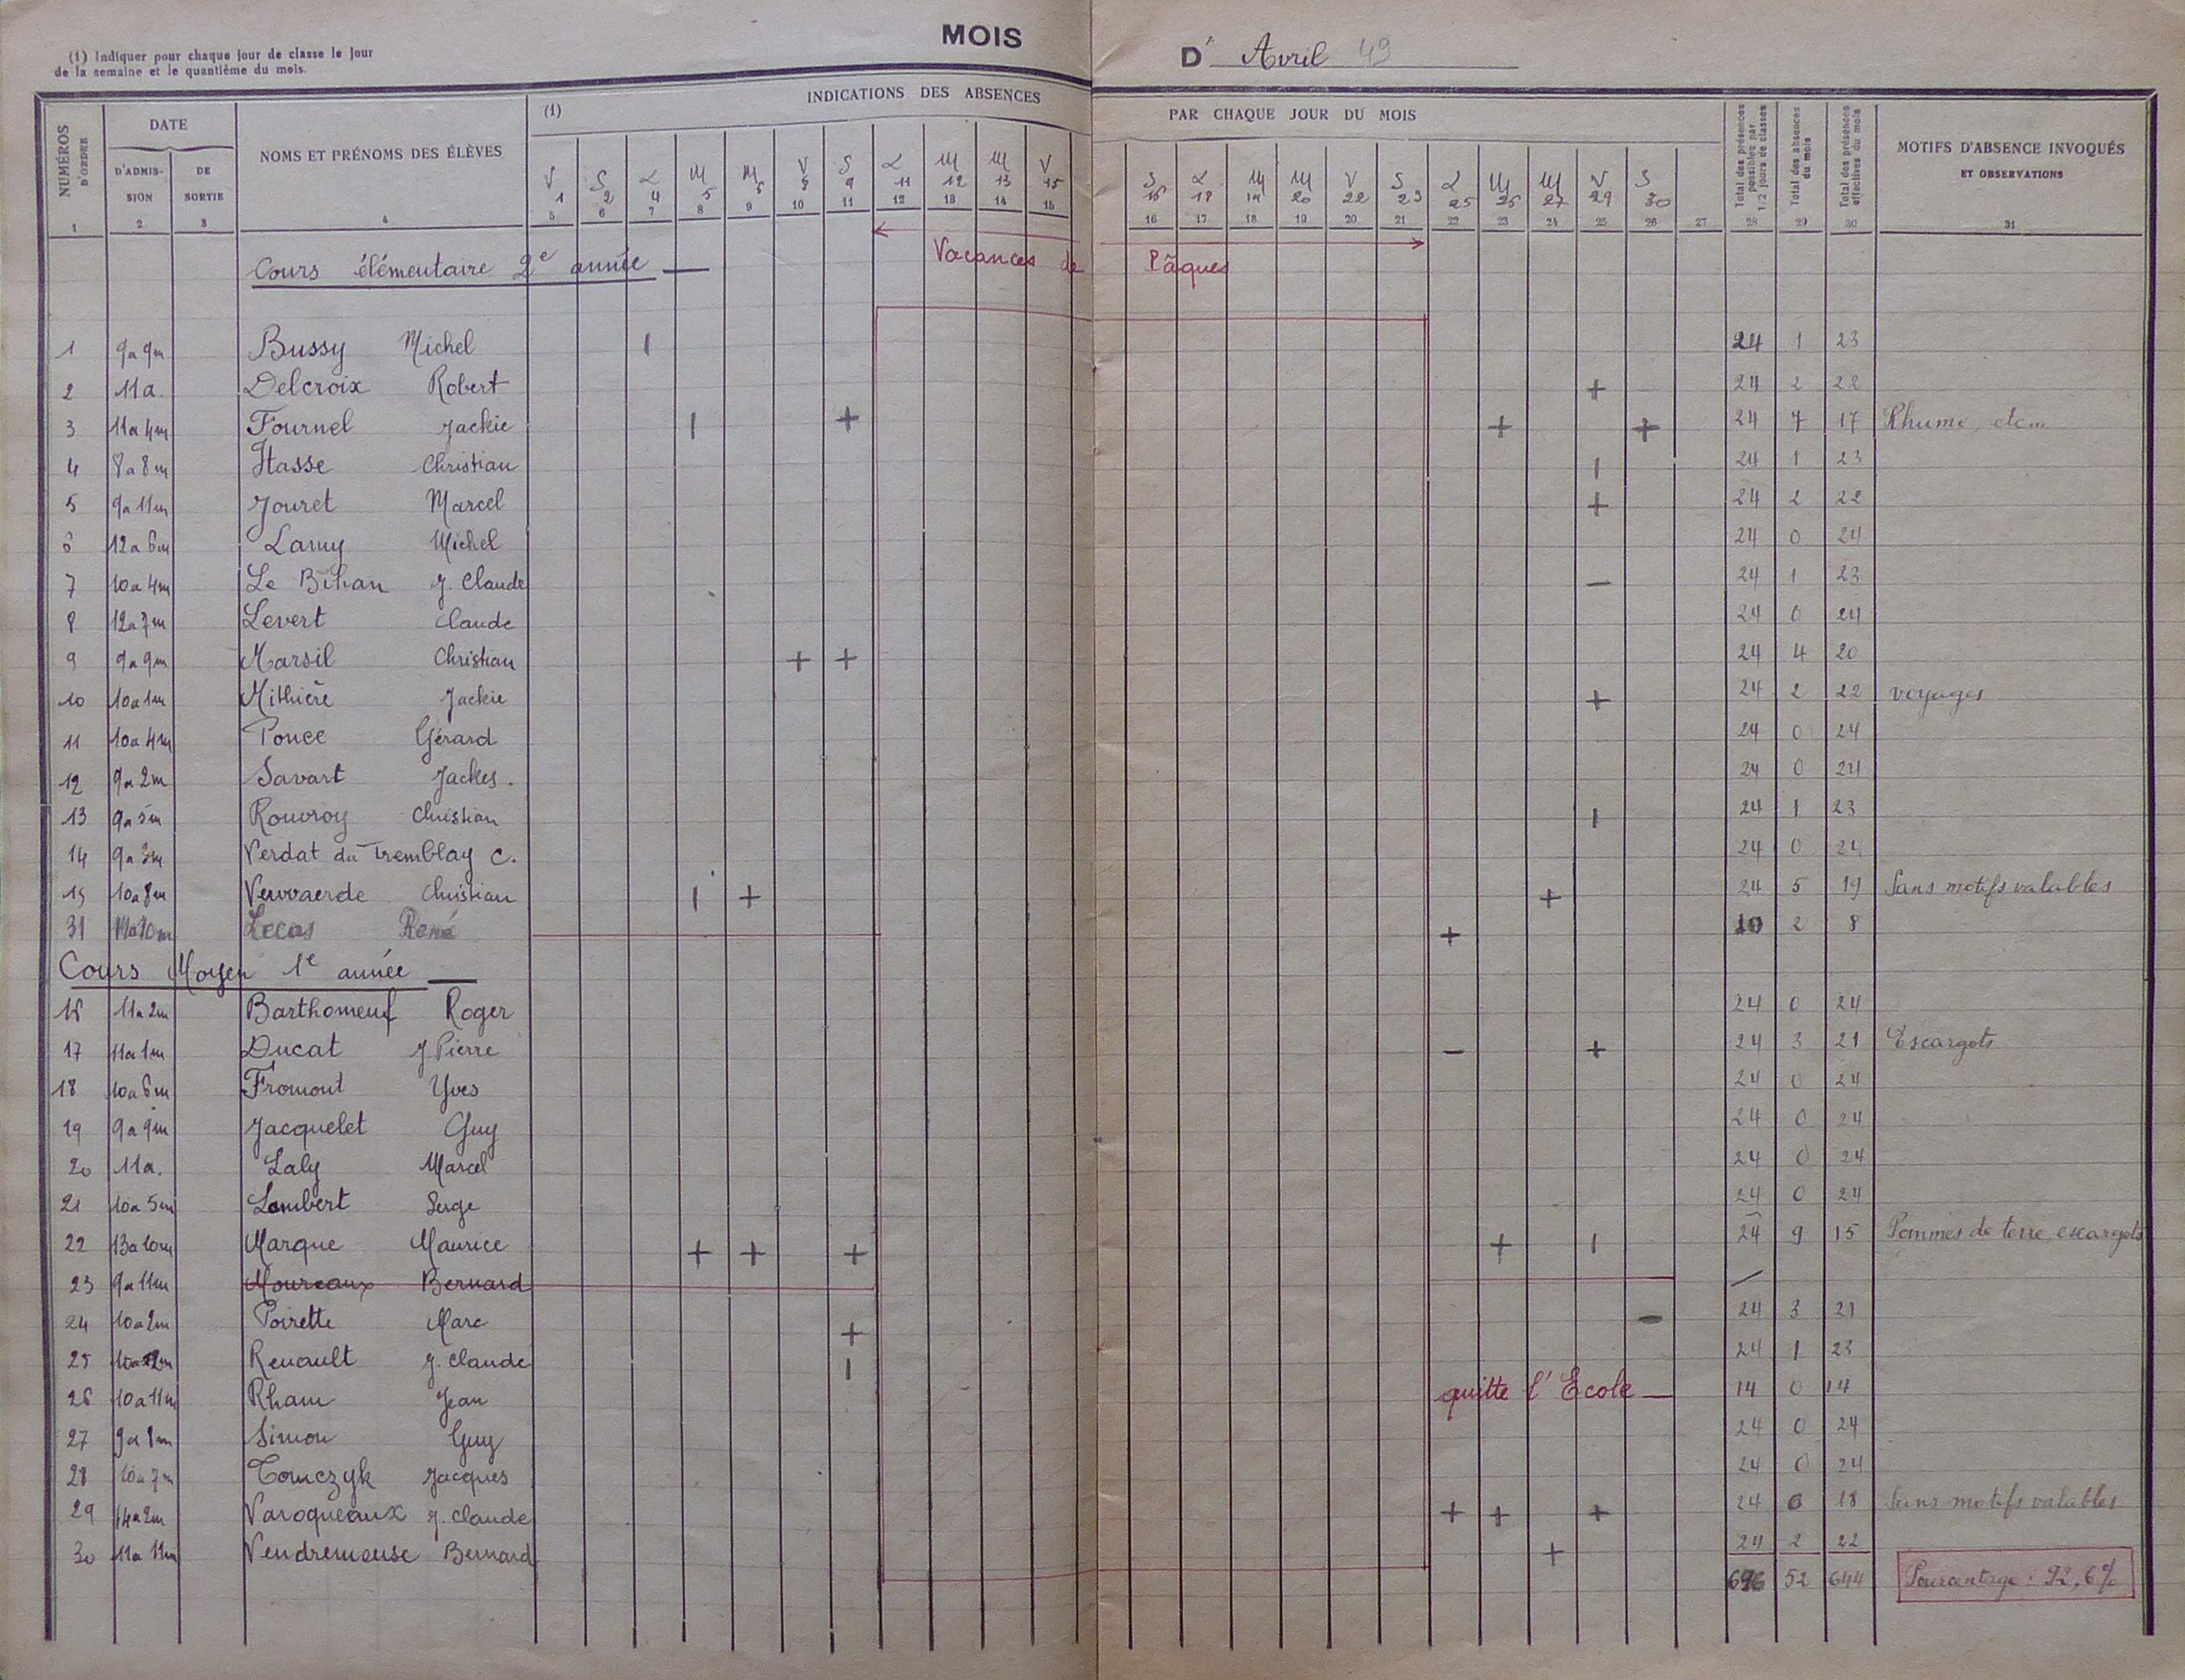 MOIS D' Avril 49
(1) Indiquer pour chaque jour de classe le jour
de la semaine et le quantième du mois.
NUMÉROS D'ORDRE
DATE
D'ADMISSION
DE SORTIE
NOMS ET PRÉNOMS DES ÉLÈVES
(1)
INDICATIONS DES ABSENCES PAR CHAQUE JOUR DU MOIS
Total des présences possibles par 1/2 jours de classes
Total des absences du mois
Total des présences effectives du mois
MOTIFS D'ABSENCE INVOQUÉS
ET OBSERVATIONS
V S L M M V S L M M V S L M M V S L M M V S
1 2 4 5 6 8 9 11 12 13 15 16 18 19 20 22 23 25 26 27 29 30
1 2 3 4 5 6 7 8 9 10 11 12 13 14 15 16 17 18 19 20 21 22 23 24 25 26 27 28 29 30 31
Cours élémentaire 2e année — Vacances de Pâques
1 9a 9m Bussy Michel | 24 1 23
2 11a. Delcroix Robert + 24 2 22
3 11a 4m Fournel Jackie | + + + 24 7 17 Rhume, etc...
4 8a 8m Hasse Christian | 24 1 23
5 9a 11m Jouret Marcel + 24 2 22
6 12a 6m Lamy Michel 24 0 24
7 10a 4m Le Bihan J. Claude – 24 1 23
8 12a 7m Levert Claude 24 0 24
9 9a 9m Marsil Christian + + 24 4 20
10 10a 1m Mithière Jackie + 24 2 22 voyages
11 10a 4m Ponce Gérard 24 0 24
12 9a 2m Savart Jackes. 24 0 24
13 9a 5m Rouvroy Christian | 24 1 23
14 9a 3m Verdat du Tremblay C. 24 0 24
15 10a 8m Vervaerde Christian | + + 24 5 19 Sans motifs valables
31 Lecas René + 10 2 8
Cours Moyen 1e année —
16 11a 2m Barthomeuf Roger 24 0 24
17 11a 1m Ducat J Pierre – + 24 3 21 Escargots
18 10a 6m Fromont Yves 24 0 24
19 9a 9m Jacquelet Guy 24 0 24
20 11a. Laly Marcel 24 0 24
21 10a 5m Lambert Serge 24 0 24
22 13a 10m Marque Maurice + + + + | 24 9 15 Pommes de terre, escargots
23 9a 11m Moureaux Bernard /
24 10a 2m Poirette Marc + – 24 3 21
25 Renault J. Claude | 24 1 23
26 10a 11m Rham Jean quitte l'Ecole — 14 0 14
27 9a 8m Simon Guy 24 0 24
28 10a 7m Tomczyk Jacques 24 0 24
29 14a 2m Varoqueaux J. Claude + + + 24 6 18 Sans motifs valables
30 11a 11m Vendremeuse Bernard + 24 2 22
696 52 644 Pourcentage : 92,6%